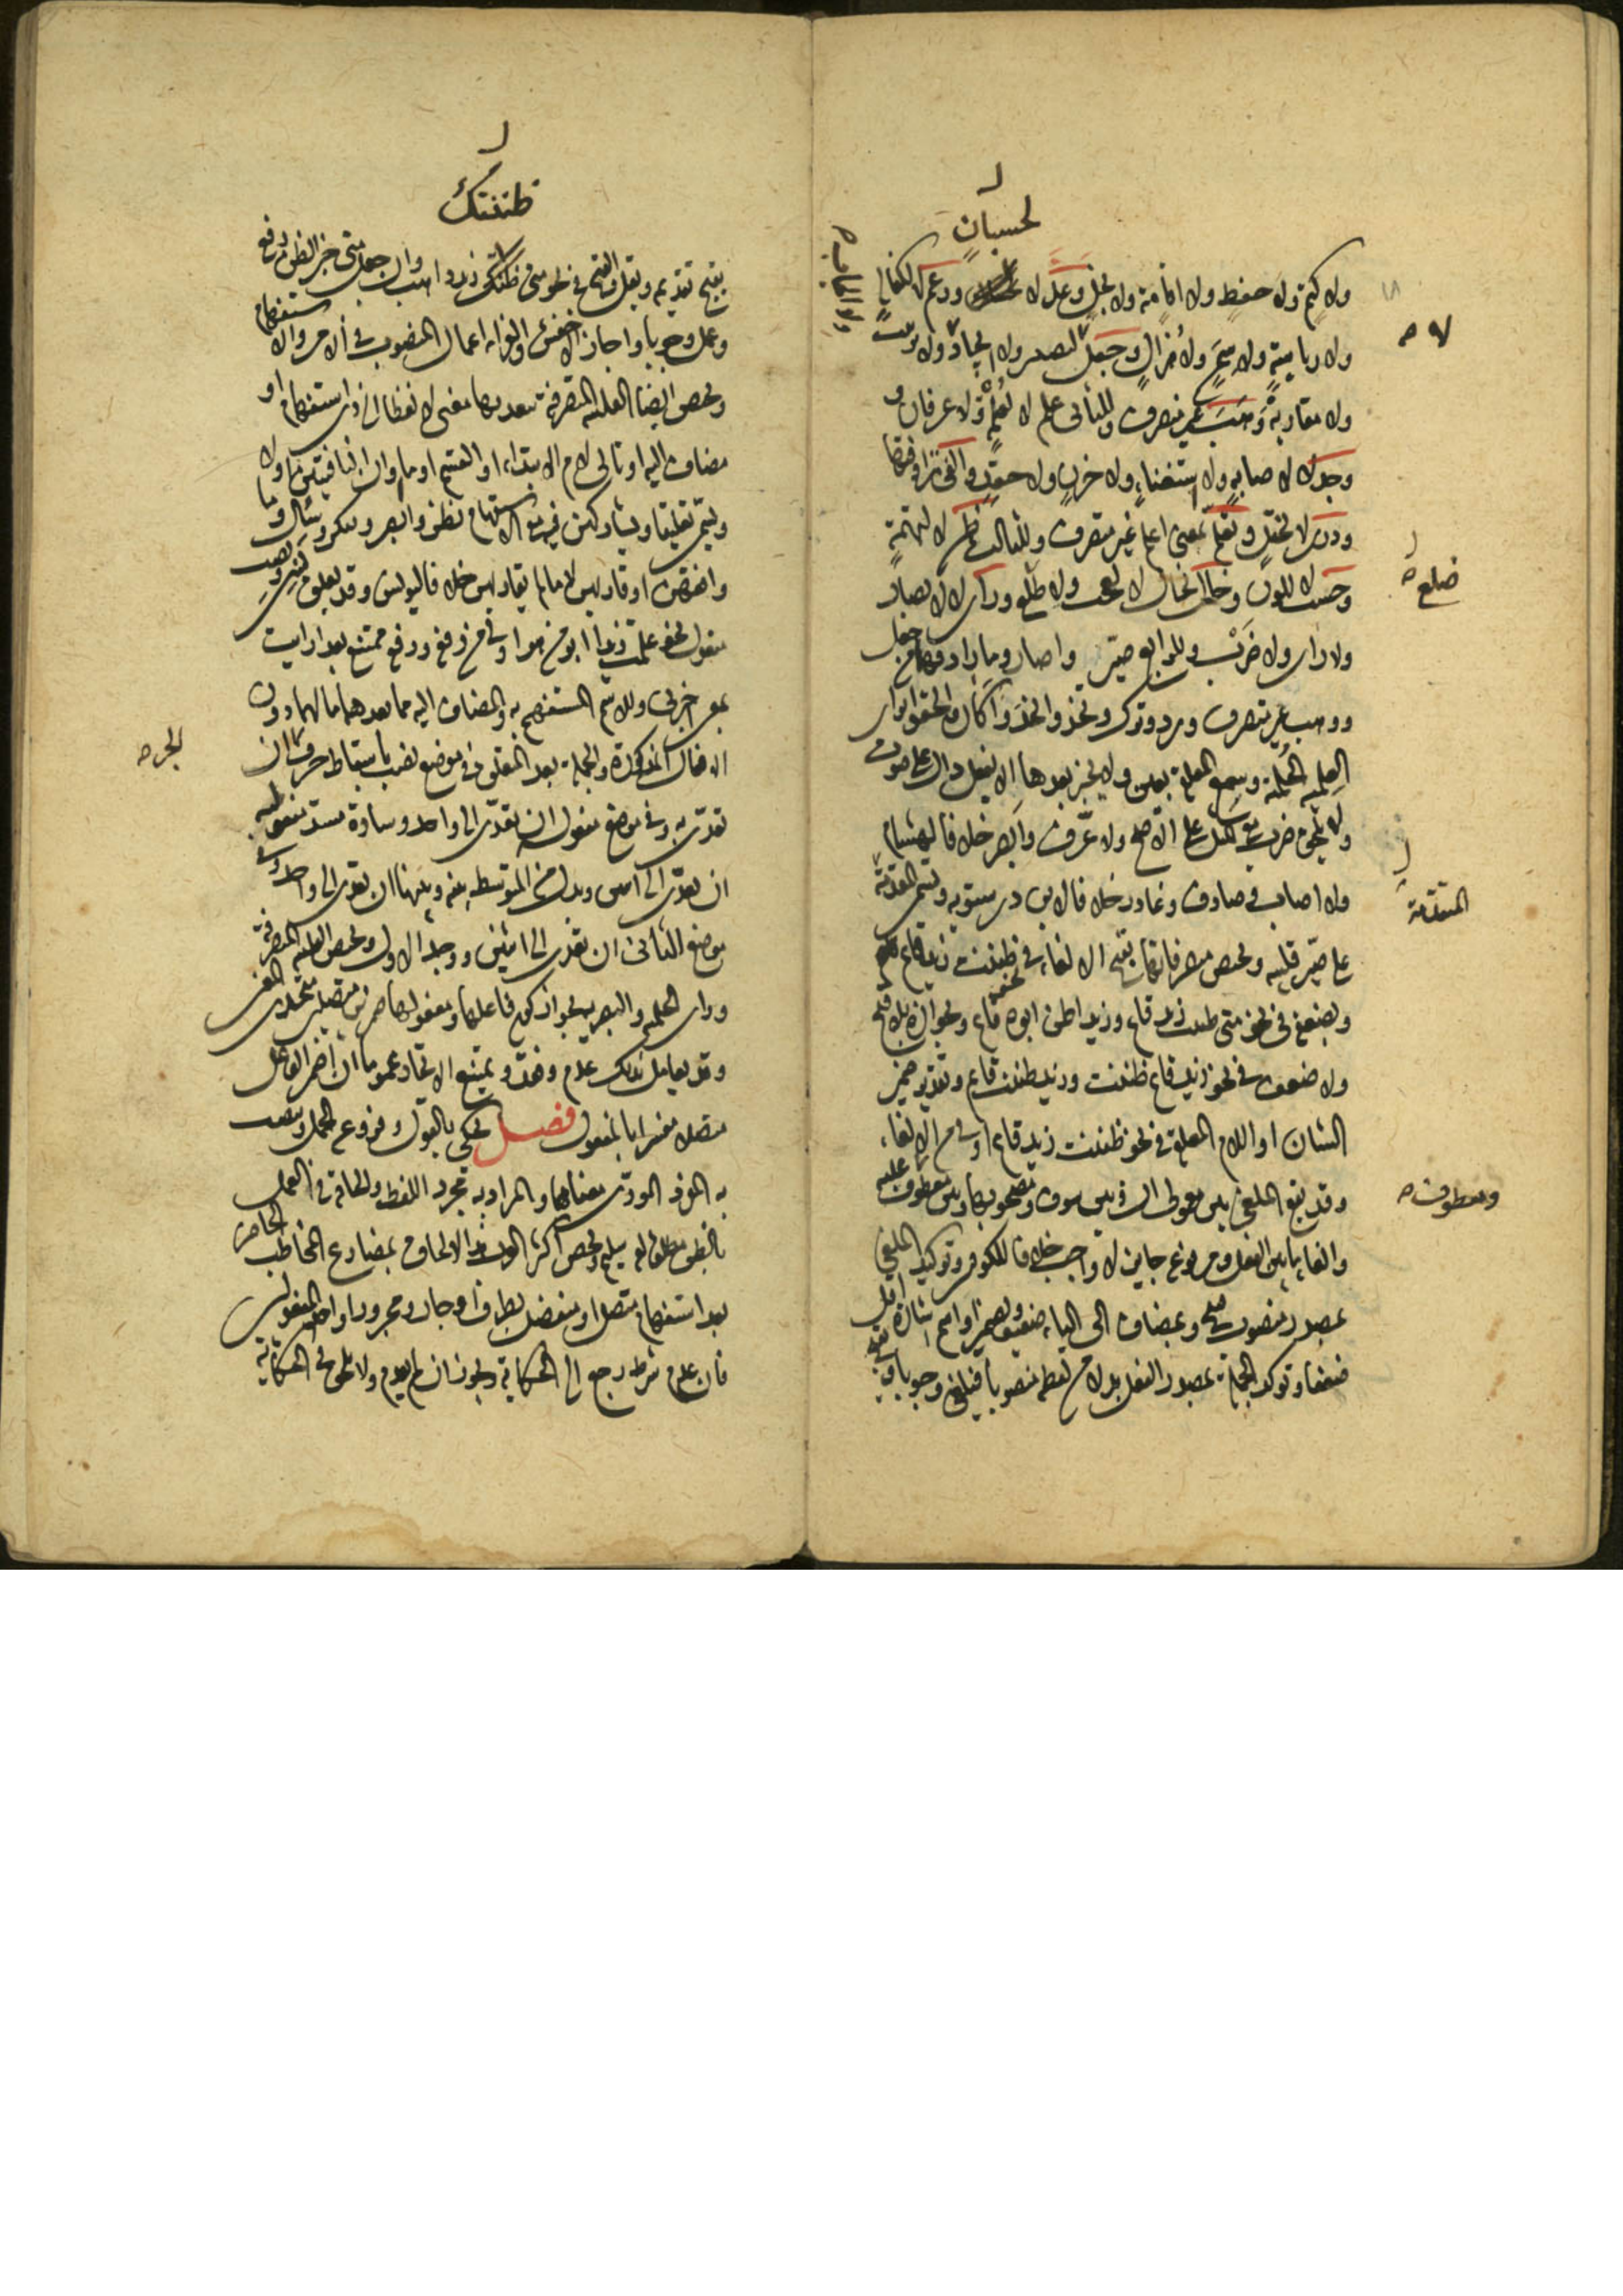 لحسبان
ولا كيمة ولا حفظ ولا اقامة ولا بخل وعد لا وزعم لا لكفالة
ولا رياسة ولا سمن ولا هزال وجعل لا لتصيير ولا ايجاد ولا ترتيب
ولا مقاربة وهب غير متصرف وللثاني علم لا لعلمة ولا عرفان و
وجد لا لاصابة ولا استغناء ولا حزن ولا حقد والفى مرادفتها
ودرى لا لختل وتعلم بمعنى اعلم غير متصرف وللثالث ظن لا لتهمة
وحسب لا للون وخال يخال لا لعجب ولا ظلع وراى لا لابصار
ضلع
ولا راى ولا ضرب وللرابع صير واصار وما رادفهما من جعل
ووهب غير متصرف ورد وترك وتخذ واتخذ واكان والحقوا براى
العلمية الحلمية وسمع المعلقة بعين ولا يخبر بعدها الا بفعل دال على صوت
ولا يلحق ضرب مع المثل على الاصح ولا عرف وابصر خلافا لهشام
ولا اصاب وصادف وغادر خلافا لابن درستويه وتسمى المتقدمة
المتقدمة
على صير قلبية وتختص متصرفاتها بقبح الالغاء في نحو ظننت زيد قائم
وبضعفه في نحو متى ظننت زيد قائم وزيد اظن ابوه قائم وبجوازه بلا قبح
ولا ضعف في نحو زيد قائم ظننت وزيد ظننت قائم وتقدير ضمير
الشان او اللام المعلقة في نحو ظننت زيد قائم اولى من الالغاء
وقد يقع الملغى بين معمولي ان وبين سوف ومصحوبها وبين معطوف عليه
ومعطوف
والغاء ما بين الفعل ومرفوعه جايز لا واجب خلافا للكوفيين وتوكيد الملغى
بمصدر منصوب قبيح وبمضاف الى الياء ضعيف وبضمير او اسم اشارة اقل
ضعفا وتؤكد الجملة بمصدر الفعل بدلا من لفظه منصوبا فيلغى وجوبا
ظننتك
يقبح تقديمه ويقل القبح في نحو متى ظنك زيد ذاهب وان جعل متى خبر الظن رفع
وعمل وجوبا واجاز الاخفش والفراء اعمال المنصوب في الامر والاستفهام
وتختص ايضا القلبية المتصرفة بتعديها معنى لا لفظا الى ذي استفهام او
مضاف اليه او تالي لام الابتداء او القسم او ما وان النافيتين او لا
ويسمى تعليقا ويشاركهن فيه مع الاستفهام نظر وابصر وتفكر وسال وما
وافقهن او قاربهن لا ما لم يقاربهن خلافا ليونس وقد تعلق نسي ونصب
مفعول نحو علمت زيدا ابو من هو اولى من رفعه ورفعه ممتنع بعد ارايت
بمعنى اخبرني وللاسم المستفهم به والمضاف اليه مما بعدهما ما لهما دون
الافعال المذكورة والجملة بعد المعلق في موضع نصب باسقاط حرف الجر ان
الجر
تعدى به وفي موضع مفعوله ان تعدى الى واحد وسادة مسد مفعوليه
ان تعدى الى اثنين وبدل من المتوسط بينه وبينها ان تعدى الى واحد وفي
موضع الثاني ان تعدى الى اثنين ووجد الاول وتختص القلبية المتصرفة
وراى الحلمية والبصرية بجواز كون فاعلها ومفعولها ضميرين متصلين متحدي المعنى
وقد يعامل بذلك عدم وفقد ويمنع الاتحاد عموما ان اضمر الفاعل
متصلا مفسرا بالمفعول فصل يحكى بالقول وفروعه الجمل وينصب
به المفرد المؤدى معناها والمراد به مجرد اللفظ والحاقه في العمل
بالظن مطلقا لغة سليم وتخص اكثر العرب هذا الالحاق بمضارع المخاطب الحاضر
بعد استفهام متصل او منفصل بظرف او جار ومجرور او احد المفعولين
فان عدم شرط رجع الى الحكاية ويجوز ان لم يعدم ولا يلحق في الحكاية